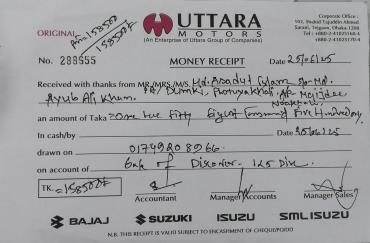 UTTARA
MOTORS
(An Enterprise of Uttara Group of Companies)
Corporate Office :
102, Shahid Tajuddin Ahmed
Sarani, Tejgaon, Dhaka-1208
ORIGINAL
158500/-
No. 288655
MONEY RECEIPT
Date 25/06/25
Received with thanks from MR./MRS./M/S. Md. Asadul Islam
Ayub Ali Khan.
an amount of Taka One Lac Fifty Eight Thousand Five Hundred only
In cash/by
Date 25/06/25
drawn on 01749208966
on account of Sale of Discover. 125 Disc
TK. =158500/-
Accountant
Manager Accounts
Manager Sales
BAJAJ
SUZUKI
ISUZU
SML ISUZU
N.B. THIS RECEIPT IS VALID SUBJECT TO ENCASHMENT OF CHEQUE/PO/DD